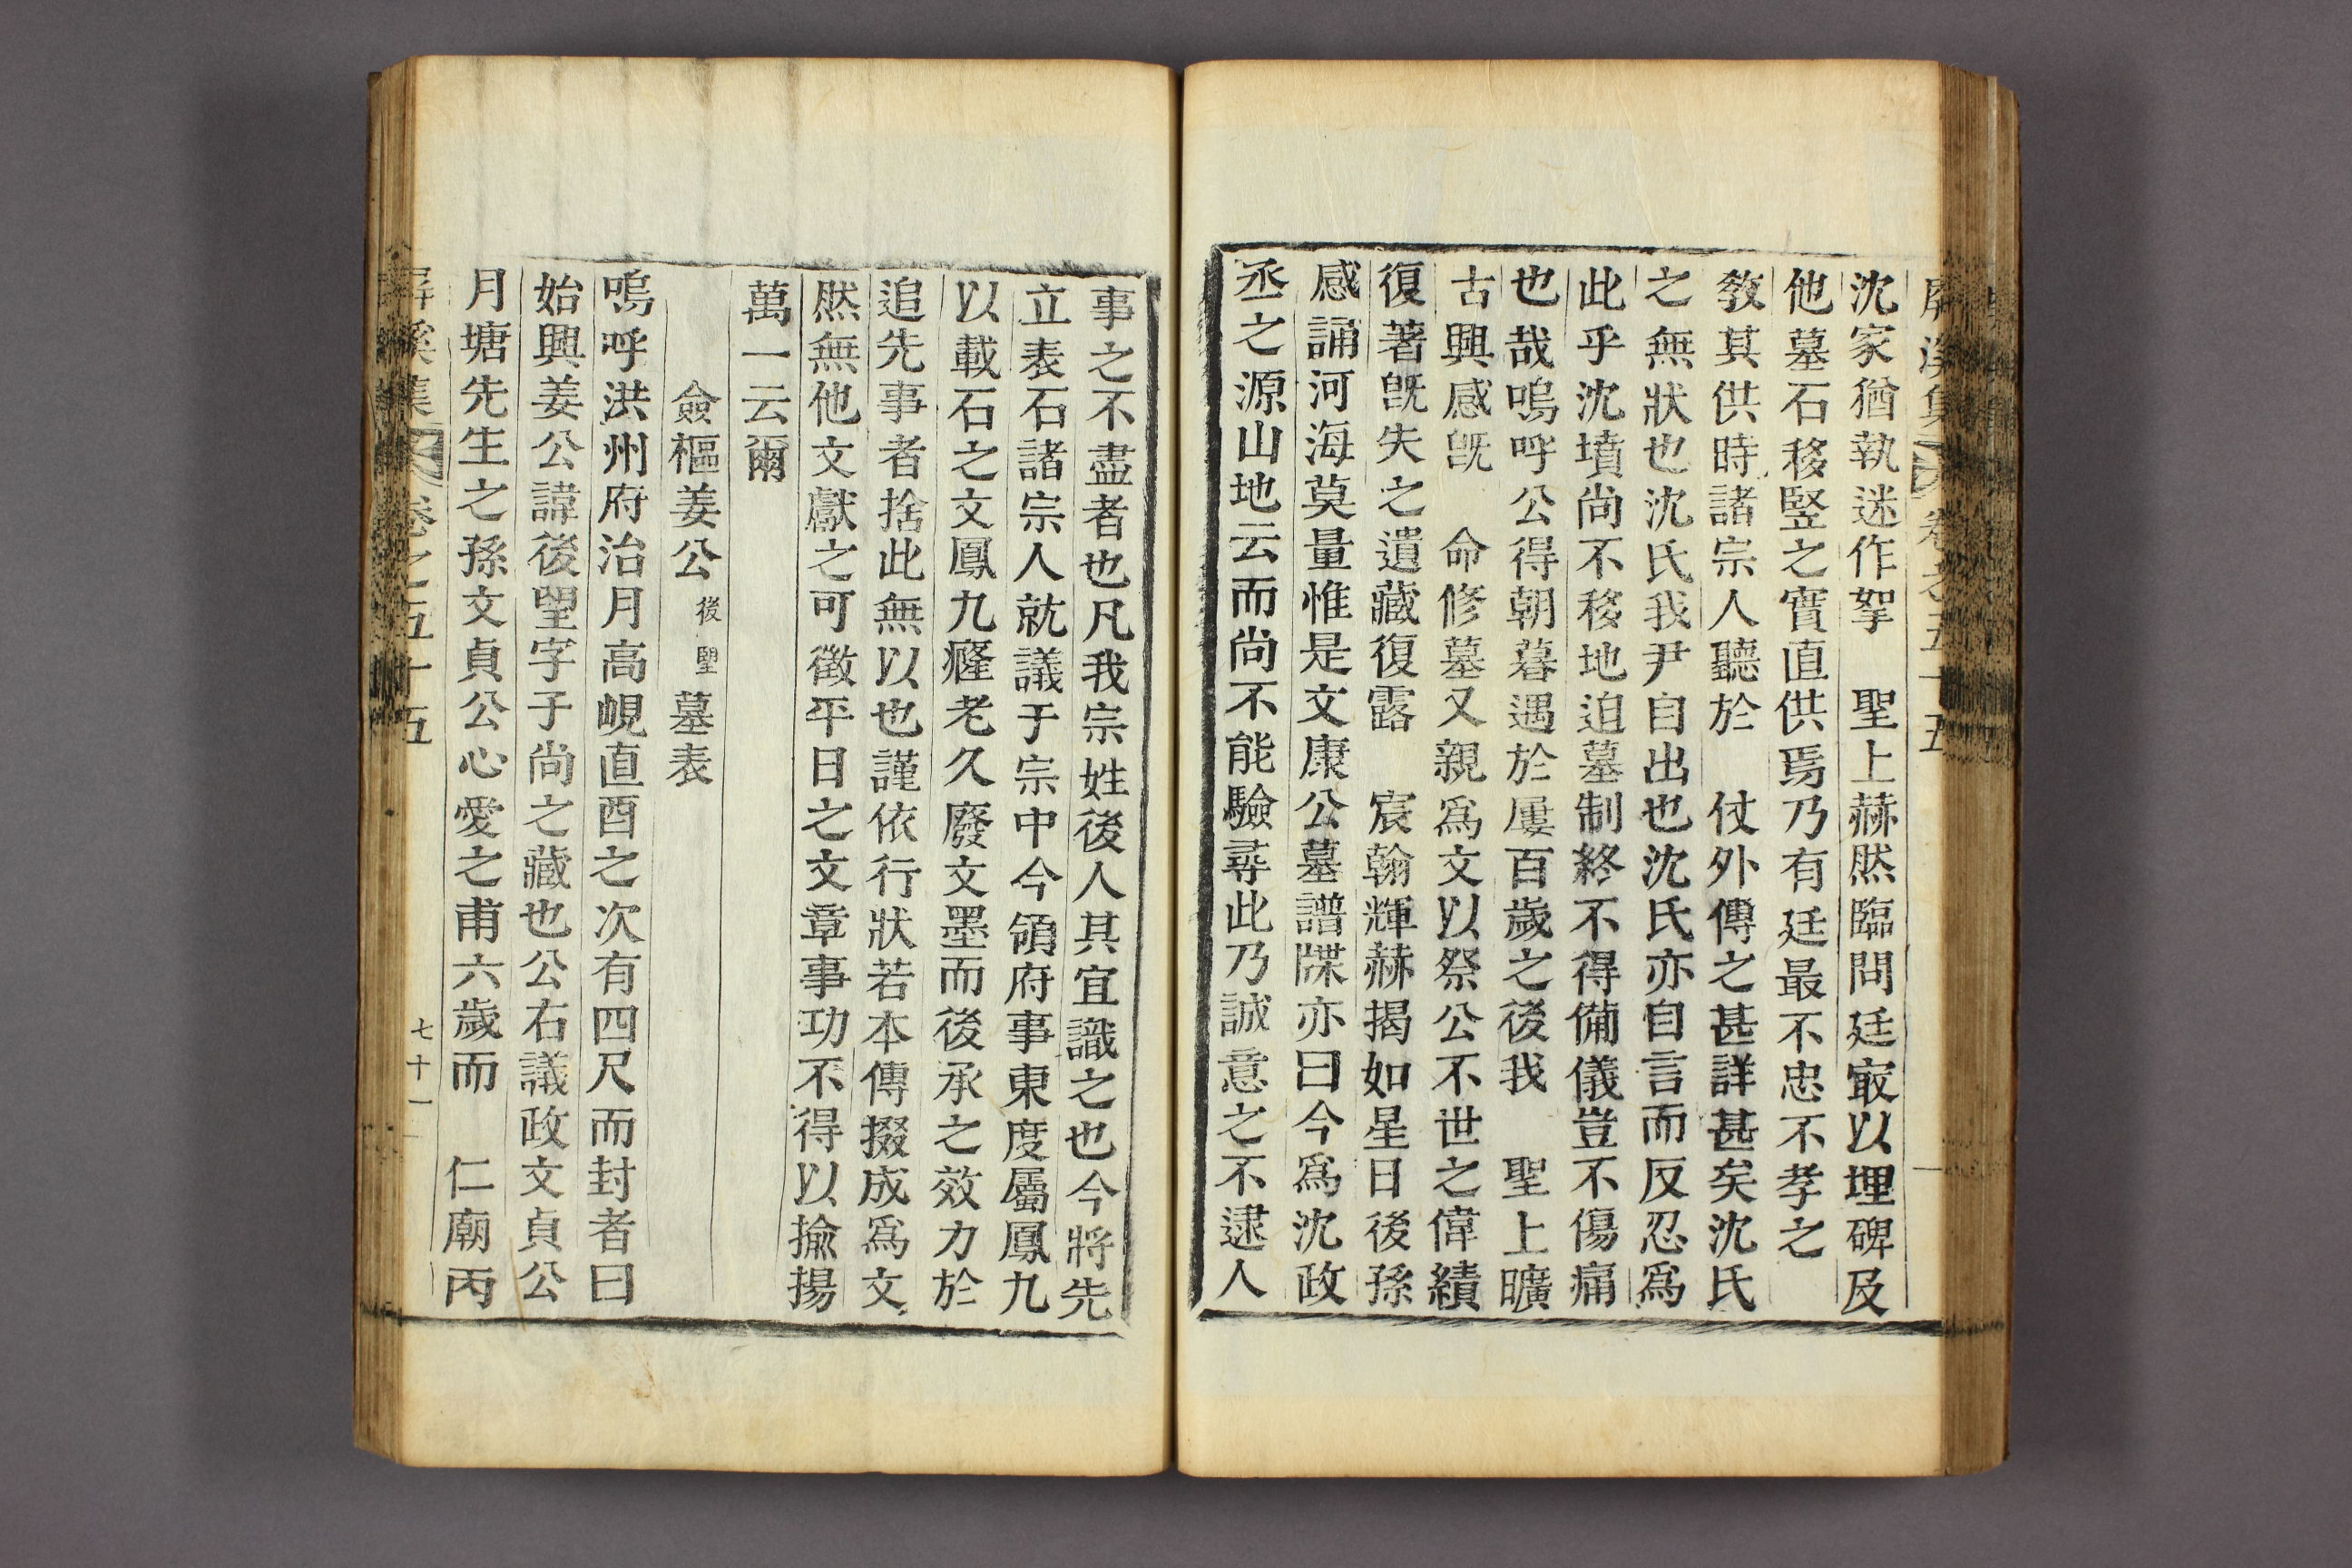 沈家猶執迷作挐　聖上赫然臨問廷㝡以埋碑及
他墓石移竪之實直供焉乃有廷最不忠不孝之
敎其供時諸宗人聽於　仗外傳之甚詳甚矣沈氏
之無狀也沈氏我尹自出也沈氏亦自言而反忍爲
此乎沈墳尚不移地迫墓制終不得備儀豈不傷痛
也哉嗚呼公得朝暮遇於屢百歲之後我　聖上曠
古興感旣　命修墓又親爲文以祭公不世之偉績
復著旣失之遺藏復露　宸翰輝赫揭如星日後孫
感誦河海莫量惟是文康公墓譜牒亦曰今爲沈政
丞之源山地云而尚不能驗尋此乃誠意之不逮人
事之不盡者也凡我宗姓後人其宜識之也今將先
立表石諸宗人就議于宗中今領府事東度屬鳳九
以載石之文鳳九癃老久廢文墨而後承之效力於
追先事者捨此無以也謹依行狀若本傳掇成爲文
然無他文獻之可徵平日之文章事功不得以揄揚
萬一云爾
僉樞姜公後望墓表
嗚呼洪州府治月高峴直酉之次有四尺而封者曰
始興姜公諱後望字子尚之藏也公右議政文貞公
月塘先生之孫文貞公心愛之甫六歲而　仁廟丙
屏溪集　卷之五十五
七十一